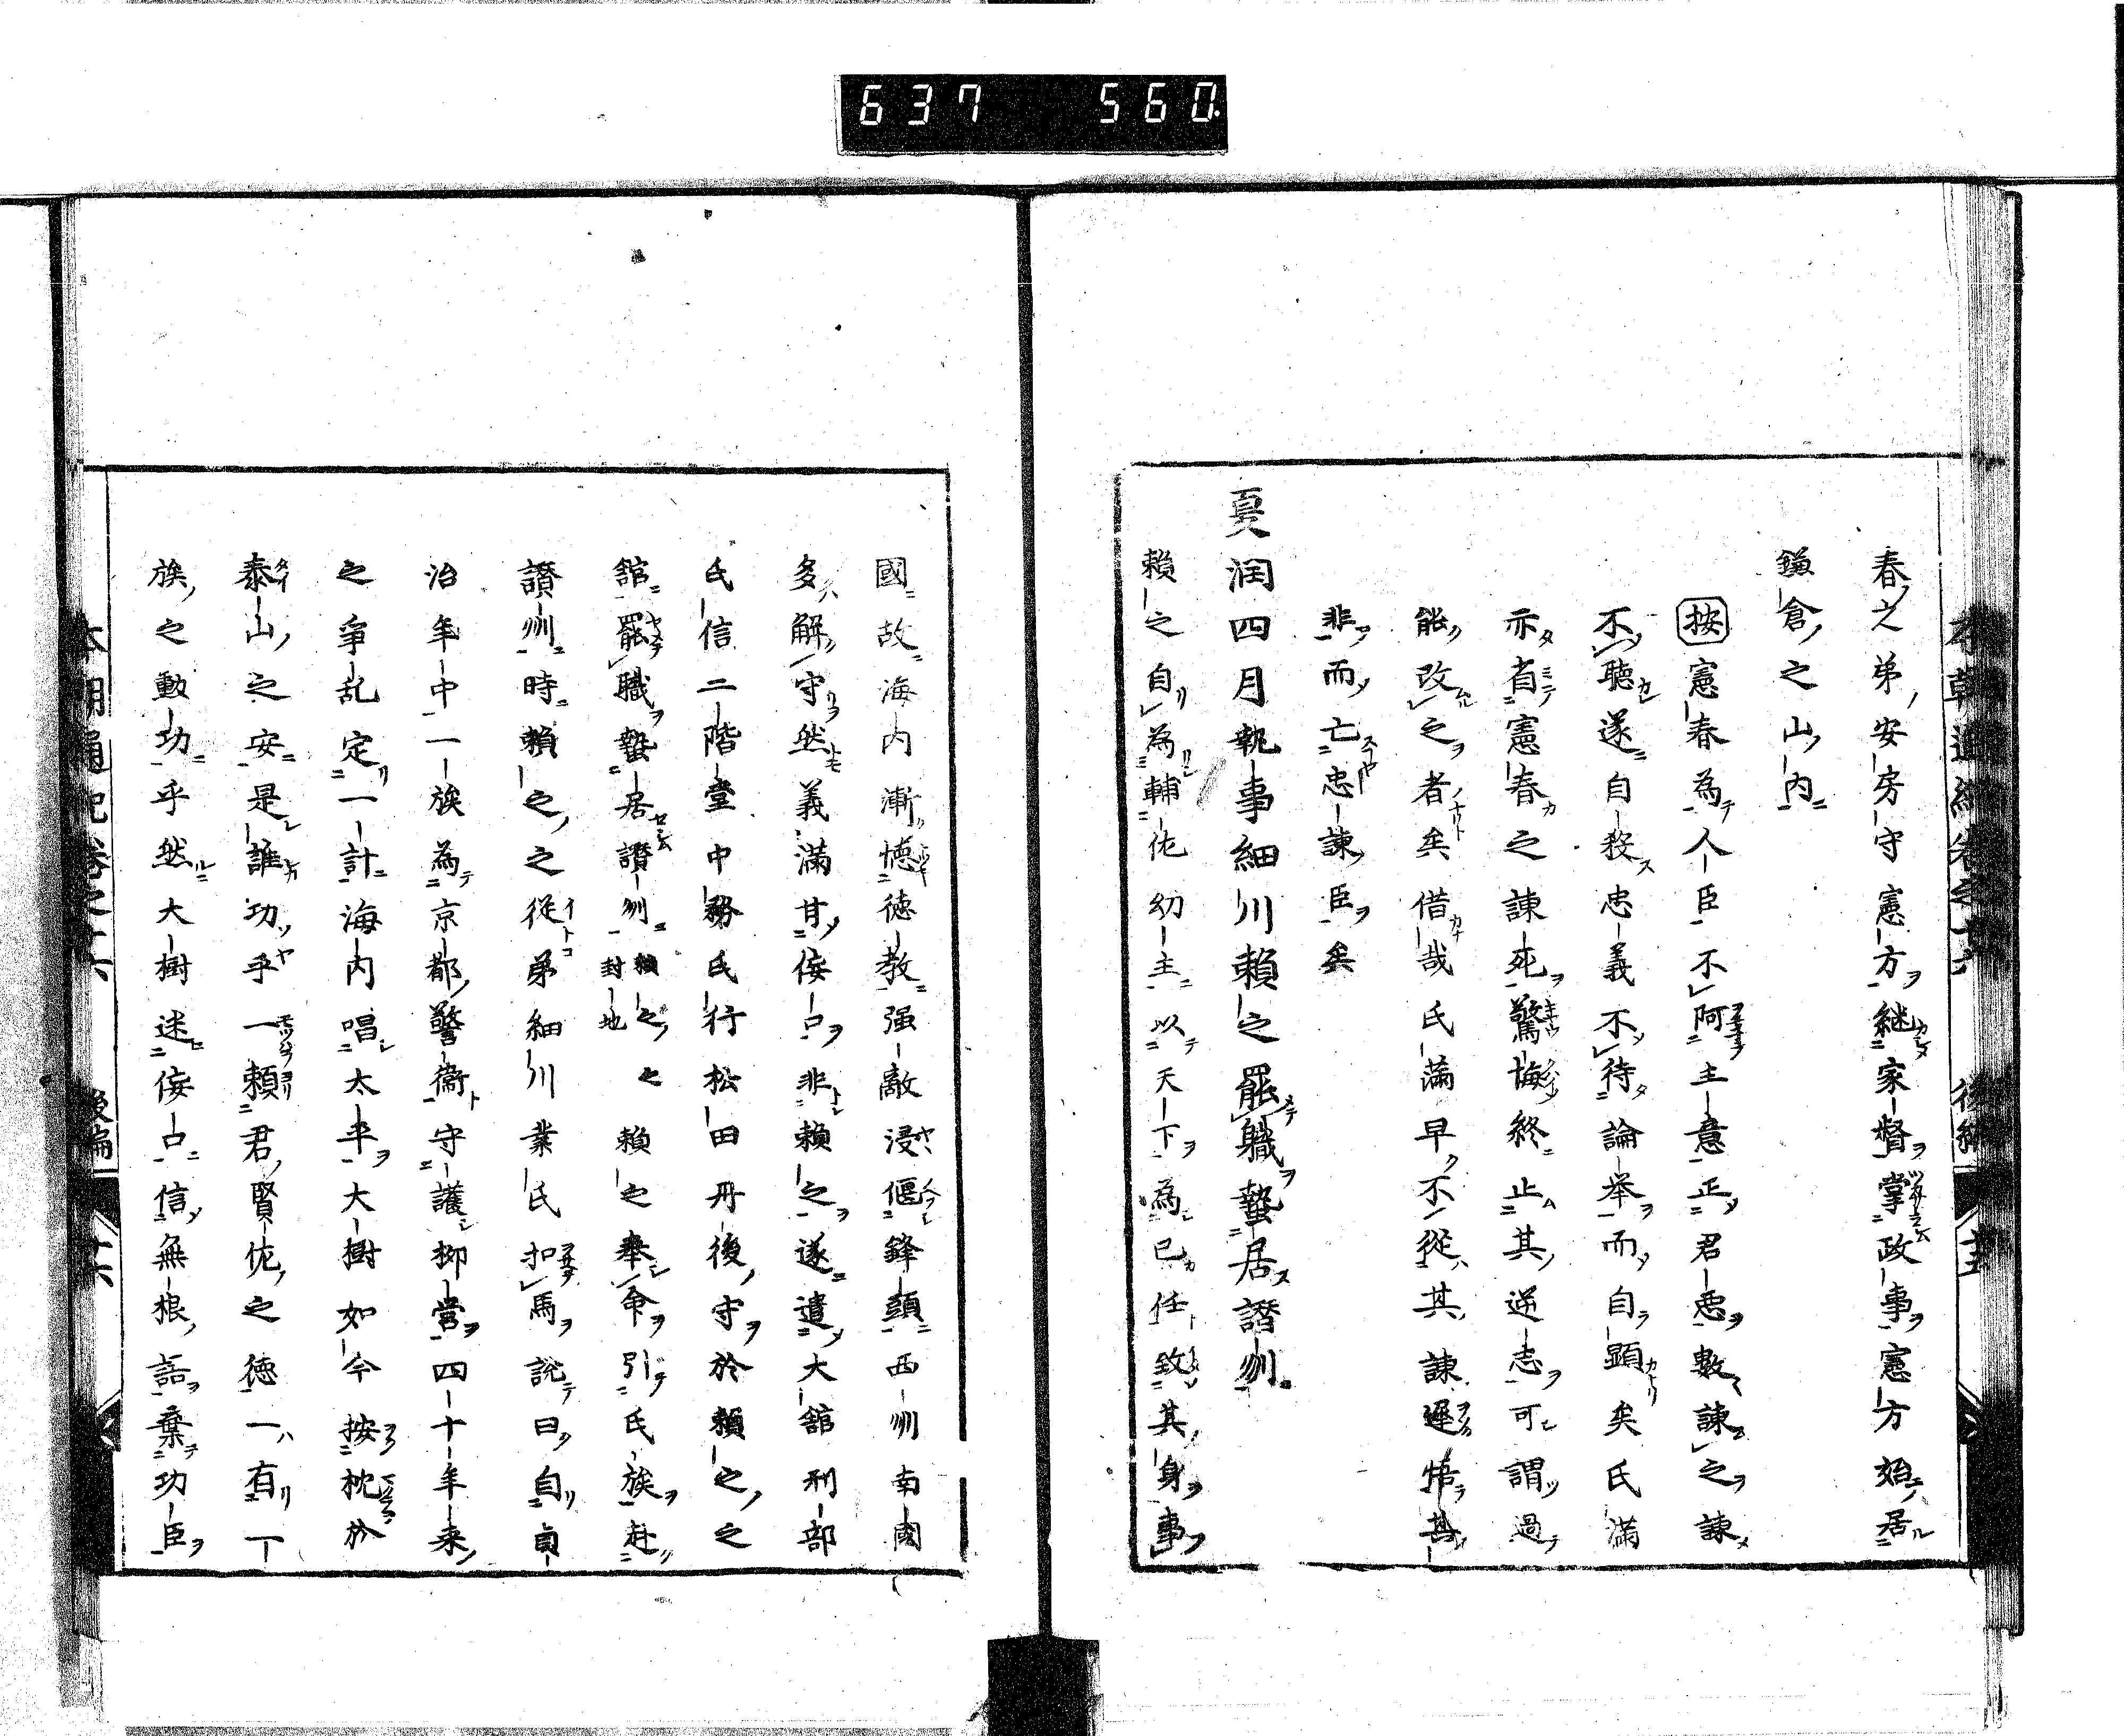 637 560
春之弟安房守憲方継家督掌政事憲方始居
鎌倉之山内
按憲春為人臣不阿主意正君悪数諫之諫
不聴遂自殺忠義不待論挙而自顕矣氏満
亦省憲春之諫死驚悔終止其逆志可謂過
能改之者矣惜哉氏満早不從其諫遲悟其
非而亡忠諫臣矣
夏潤四月執事細川頼之罷職蟄居讃州
頼之自為輔佐幼主以天下為己任致其身事
國故海内漸徳教强敵浸偃鋒頭西州南國
多解守然義満甘佞口非頼之遂遣大舘刑部
氏信二階堂中務氏行松田丹後守於頼之之
舘罷職蟄居讃州頼之之封地頼之奉命引氏族赴
讃州時頼之之從弟細川業氏扣馬説曰自貞
治年中一族為京都警衞守護柳営四十年来
之爭乱定一計海内唱太平大樹如今按枕於
泰山之安是誰功乎一頼君賢佐之徳一有丁
族之勳功乎然大樹迷佞口信無根話棄功臣
本朝通紀卷之十六 後編 十六